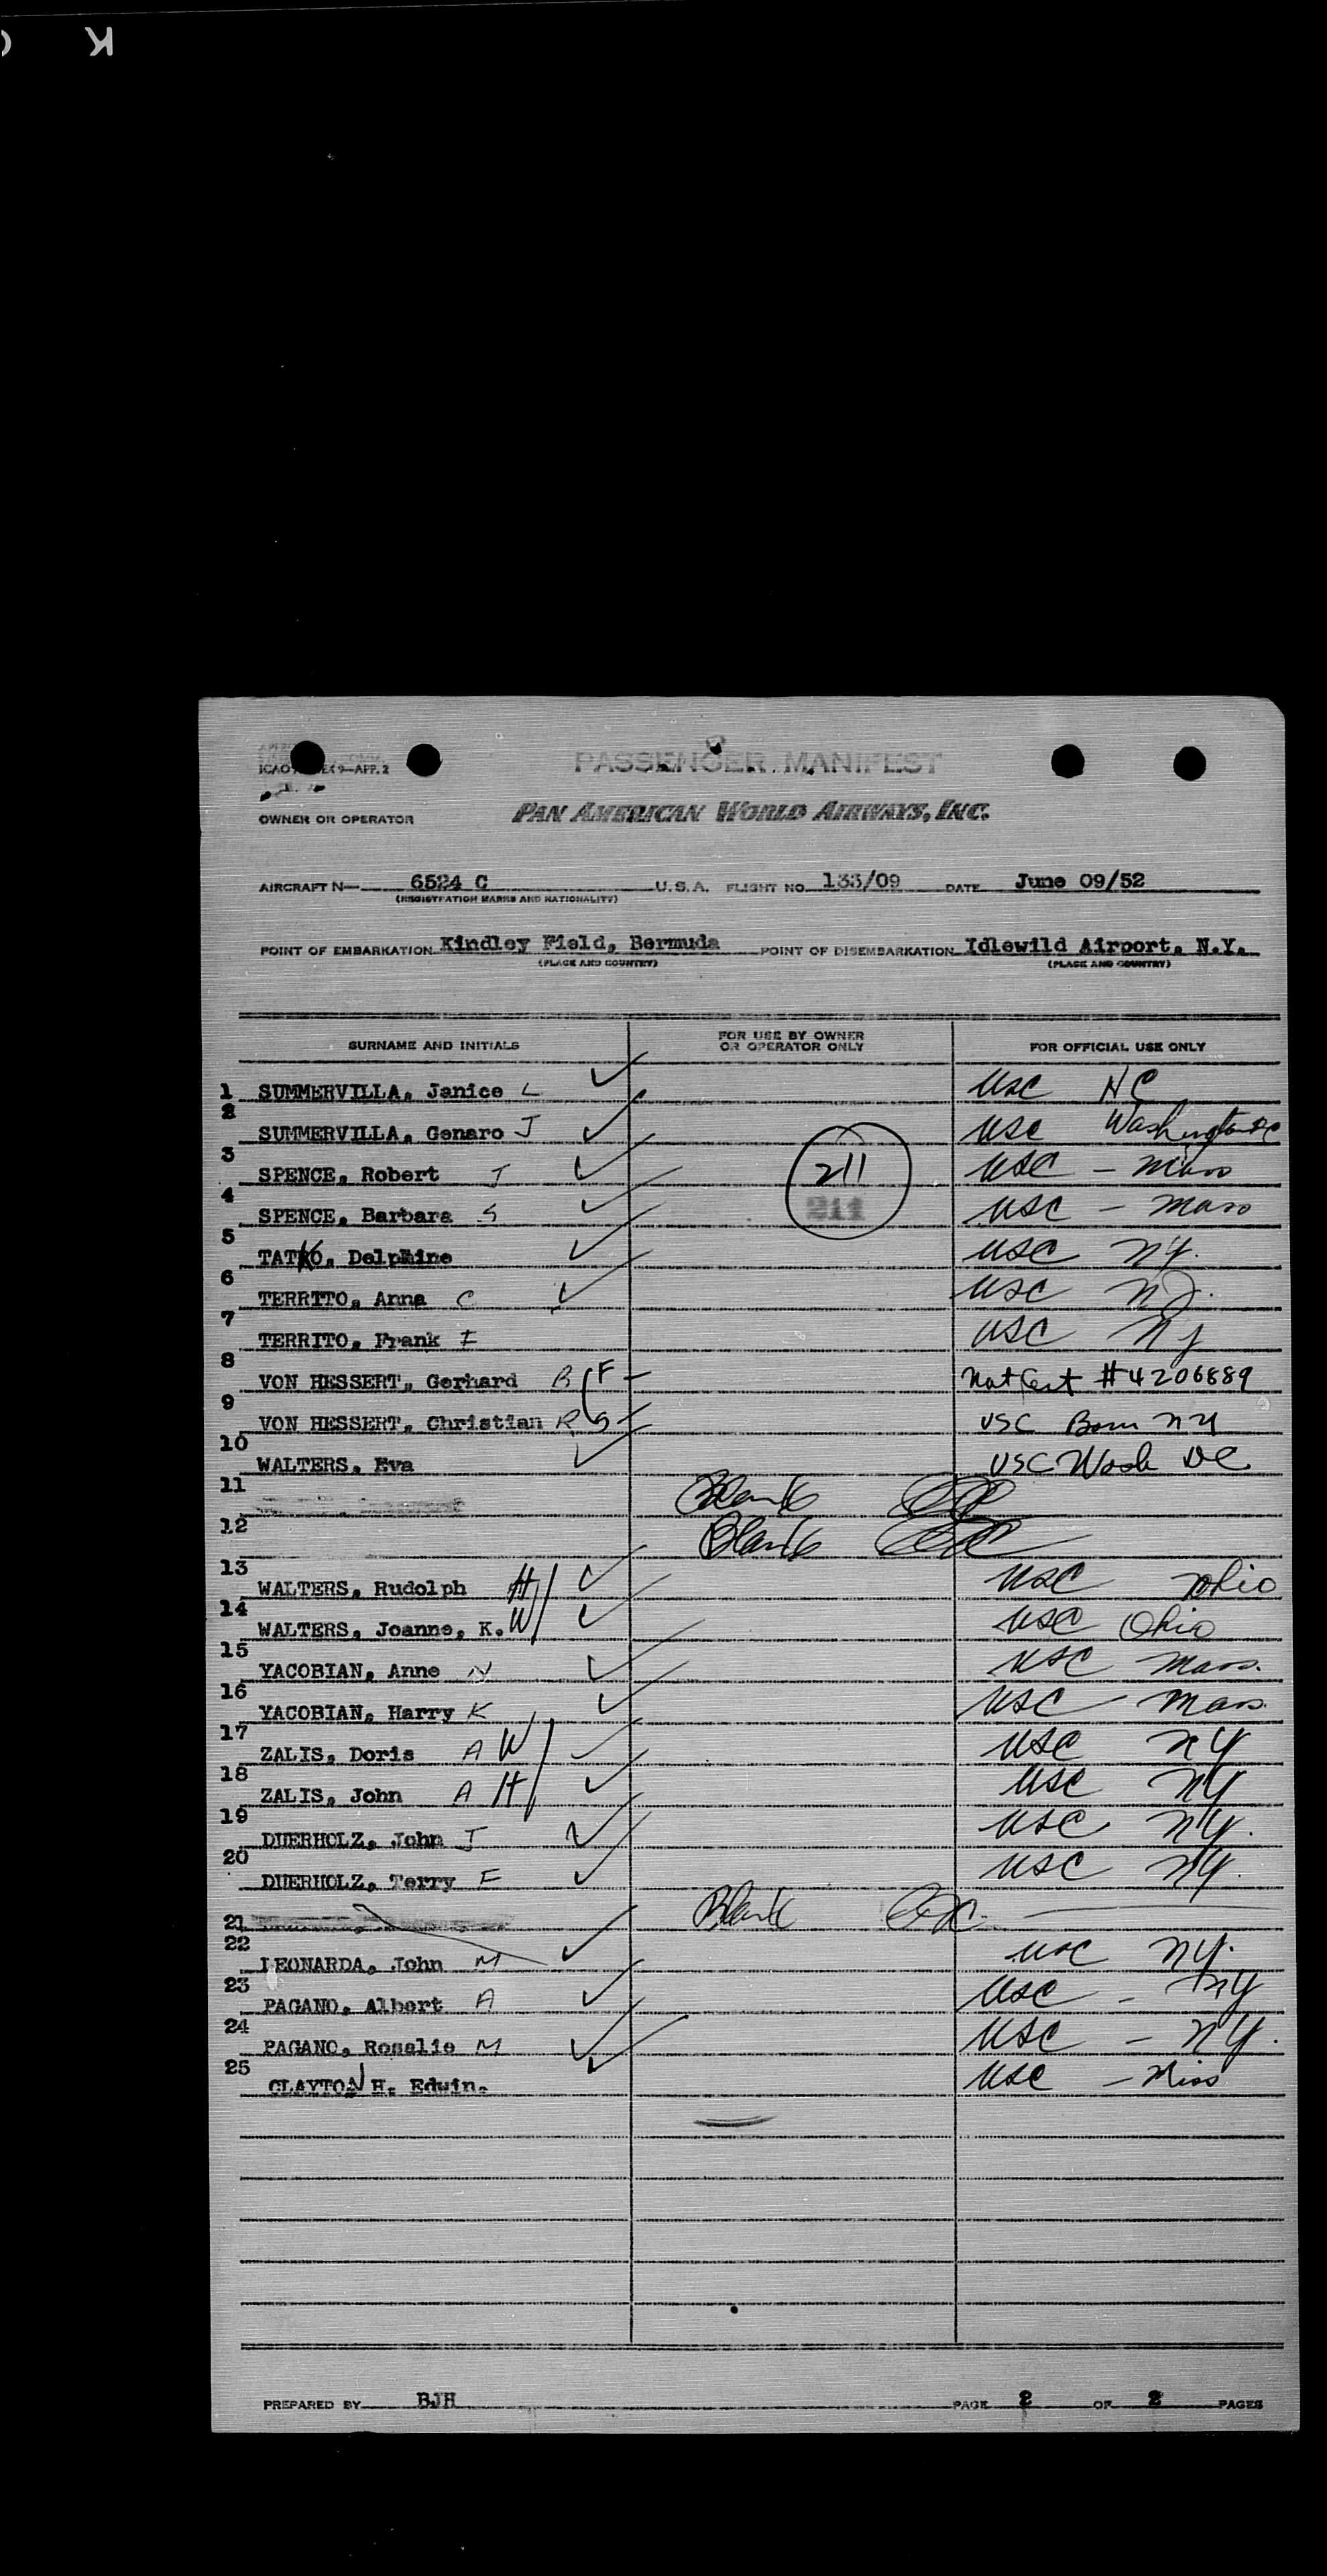 K
ICAO EX 9—APP. 2
PASSENGER MANIFEST
OWNER OR OPERATOR PAN AMERICAN WORLD AIRWAYS, INC.
AIRCRAFT N— 6524 C U.S.A. FLIGHT NO. 133/09 DATE June 09/52
(REGISTRATION MARKS AND NATIONALITY)
POINT OF EMBARKATION Kindley Field, Bermuda POINT OF DISEMBARKATION Idlewild Airport, N.Y.
(PLACE AND COUNTRY) (PLACE AND COUNTRY)
SURNAME AND INITIALS FOR USE BY OWNER OR OPERATOR ONLY FOR OFFICIAL USE ONLY
1 SUMMERVILLA, Janice L USC NC
2 SUMMERVILLA, Genaro J USC Washington DC
3 SPENCE, Robert J 211 USC - Mass
4 SPENCE, Barbara S 211 USC - Mass
5 TATKO, Delphine USC NY.
6 TERRITO, Anna C USC NJ.
7 TERRITO, Frank I USC NJ
8 VON HESSERT, Gerhard B F Nat Cert #4206889
9 VON HESSERT, Christian R S USC Born NY
10 WALTERS, Eva USC Wash DC
11 Blank
12 Blank
13 WALTERS, Rudolph H USC Ohio
14 WALTERS, Joanne, K. W USC Ohio
15 YACOBIAN, Anne N USC Mass.
16 YACOBIAN, Harry K USC - Mass.
17 ZALIS, Doris A W USC NY
18 ZALIS, John A H USC NY
19 DUERHOLZ, John J USC NY.
20 DUERHOLZ, Terry E USC NY.
21 Blank
22 LEONARDA, John M USC NY.
23 PAGANO, Albert A USC - NY
24 PAGANO, Rosalie M USC - NY.
25 CLAYTON H. Edwin. USC - Miss
PREPARED BY BJH PAGE 2 OF 2 PAGES